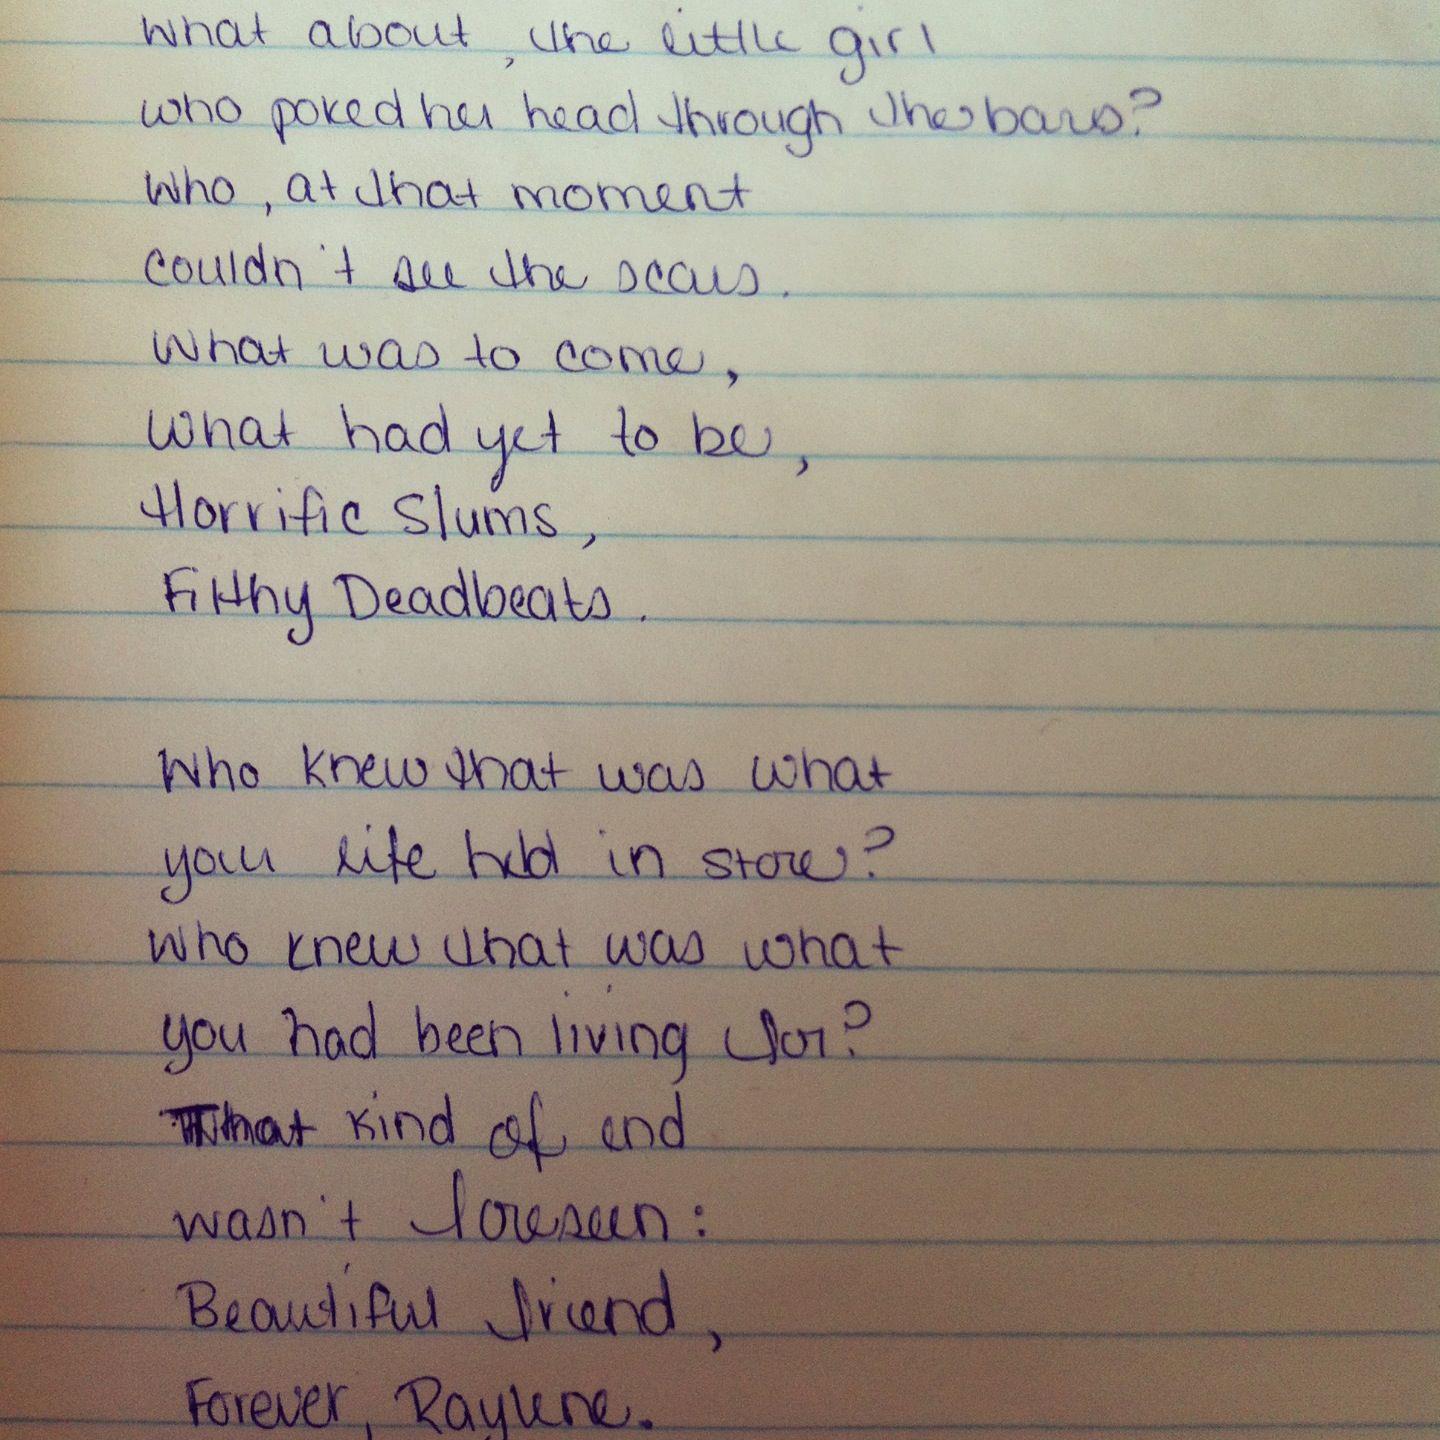 what about, the little girl
who poked her head through the bars?
Who, at that moment
couldn't see the scars.
What was to come,
What had yet to be,
Horrific Slums,
Filthy Deadbeats.
Who knew that was what
your life held in store?
Who knew that was what
you had been living for?
That kind of end
wasn't foreseen:
Beautiful friend,
Forever, Raylene.